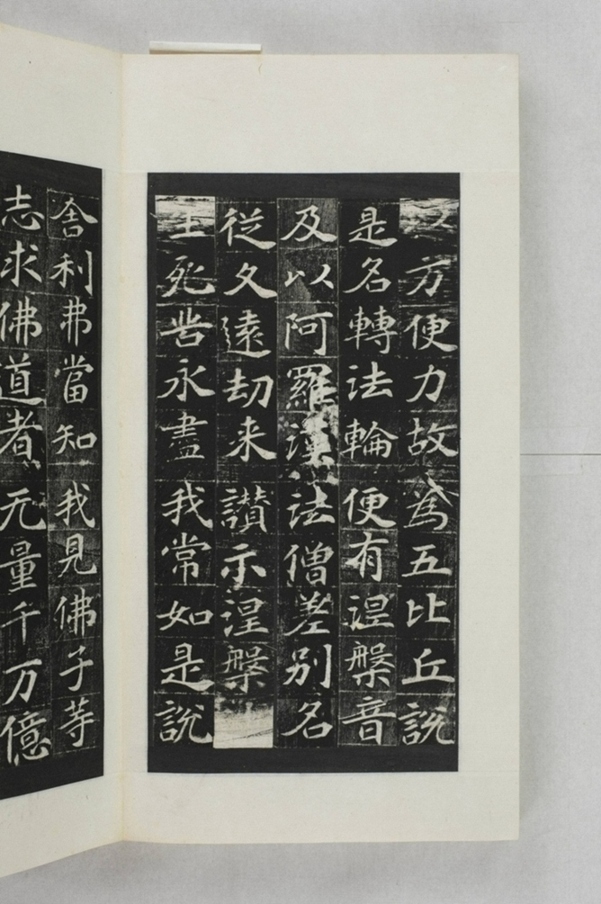 方便力故 為五比丘說
是名轉法輪 便有涅槃音
及以阿羅漢 法僧差別名
從久遠劫来 讃示涅槃
生死苦永盡 我常如是說
舎利弗當知 我見佛子等
志求佛道者 无量千万億